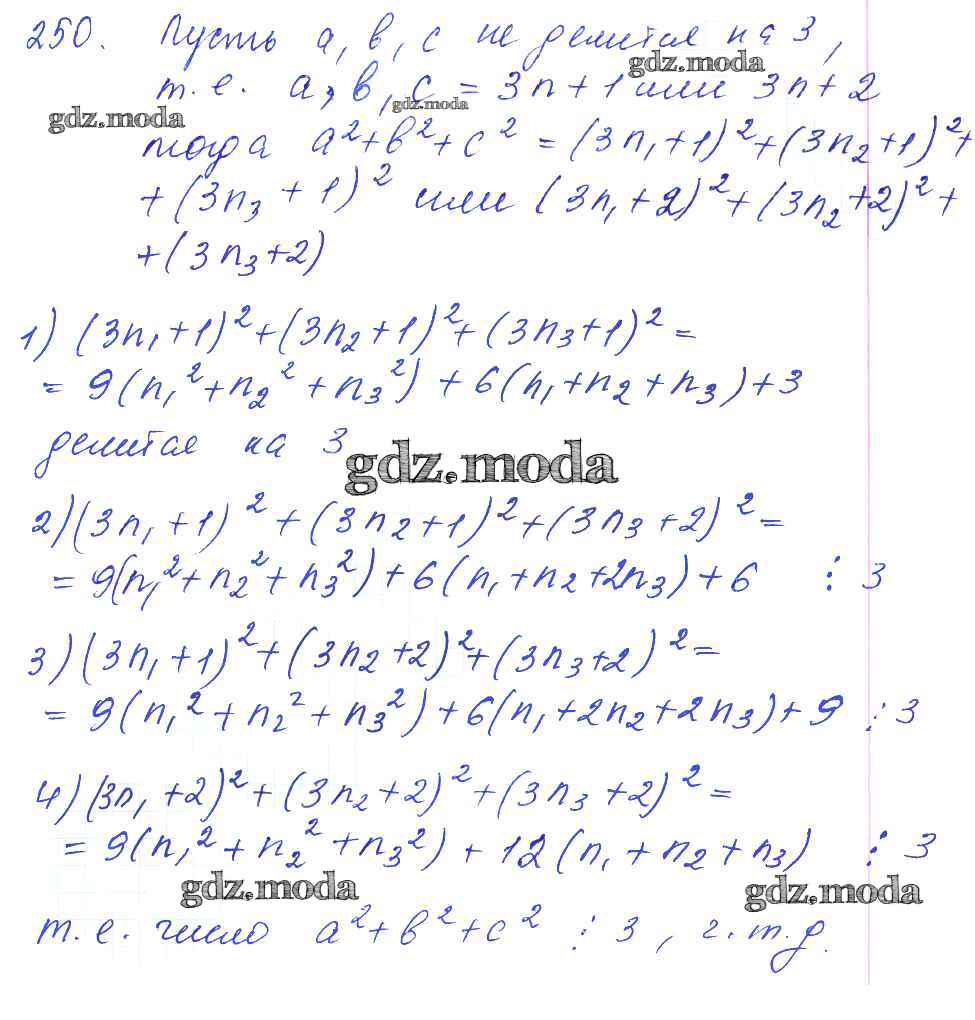 250. Пусть a, b, c не делится на 3,
gdz.moda
т.е. a, b, c = 3n + 1 или 3n + 2
gdz.moda
gdz.moda
тогда a² + b² + c² = (3n₁+1)² + (3n₂+1)² +
+ (3n₃ + 1)² или (3n₁+2)² + (3n₂+2)² +
+ (3n₃+2)
1) (3n₁+1)² + (3n₂+1)² + (3n₃+1)² =
= 9(n₁² + n₂² + n₃²) + 6(n₁+n₂+n₃) + 3
делится на 3
gdz.moda
2) (3n₁+1)² + (3n₂+1)² + (3n₃+2)² =
= 9(n₁² + n₂² + n₃²) + 6(n₁+n₂+2n₃) + 6 ⋮ 3
3) (3n₁+1)² + (3n₂+2)² + (3n₃+2)² =
= 9(n₁² + n₂² + n₃²) + 6(n₁+2n₂+2n₃) + 9 ⋮ 3
4) (3n₁+2)² + (3n₂+2)² + (3n₃+2)² =
= 9(n₁² + n₂² + n₃²) + 12(n₁+n₂+n₃) ⋮ 3
gdz.moda
gdz.moda
т.е. число a² + b² + c² ⋮ 3, ч.т.д.